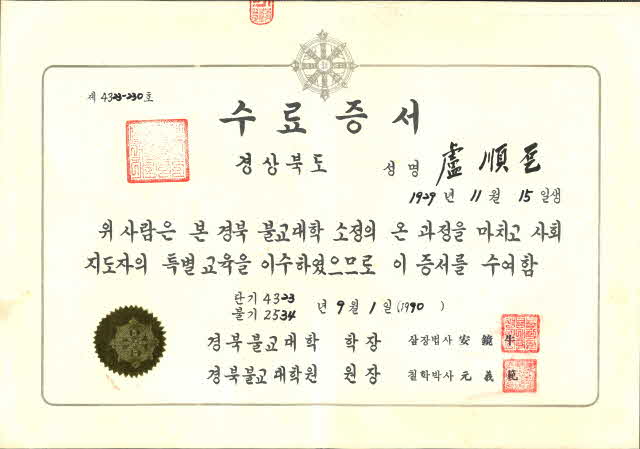 제 4323-230 호
수료증서
경상북도 성명 盧順
1929 년 11 월 15 일생
위 사람은 본 경북 불교대학 소정의 온 과정을 마치고 사회
지도자의 특별 교육을 이수하였으므로 이 증서를 수여함
단기 4323
불기 2534 년 9 월 1 일 (1990)
경북불교대학 학장 삼장법사 安鏡牛
경북불교대학원 원장 철학박사 元義範